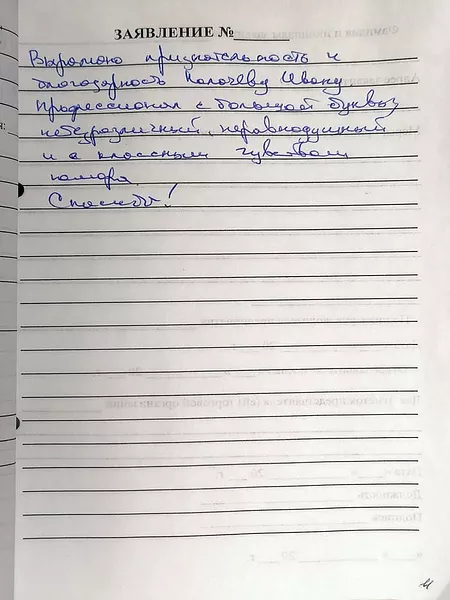 ЗАЯВЛЕНИЕ №
Выражаю признательность и
благодарность Ивану.
Профессионал с большой буквы,
небезразличный, неравнодушный
и с классным чувством
юмора.
Спасибо!